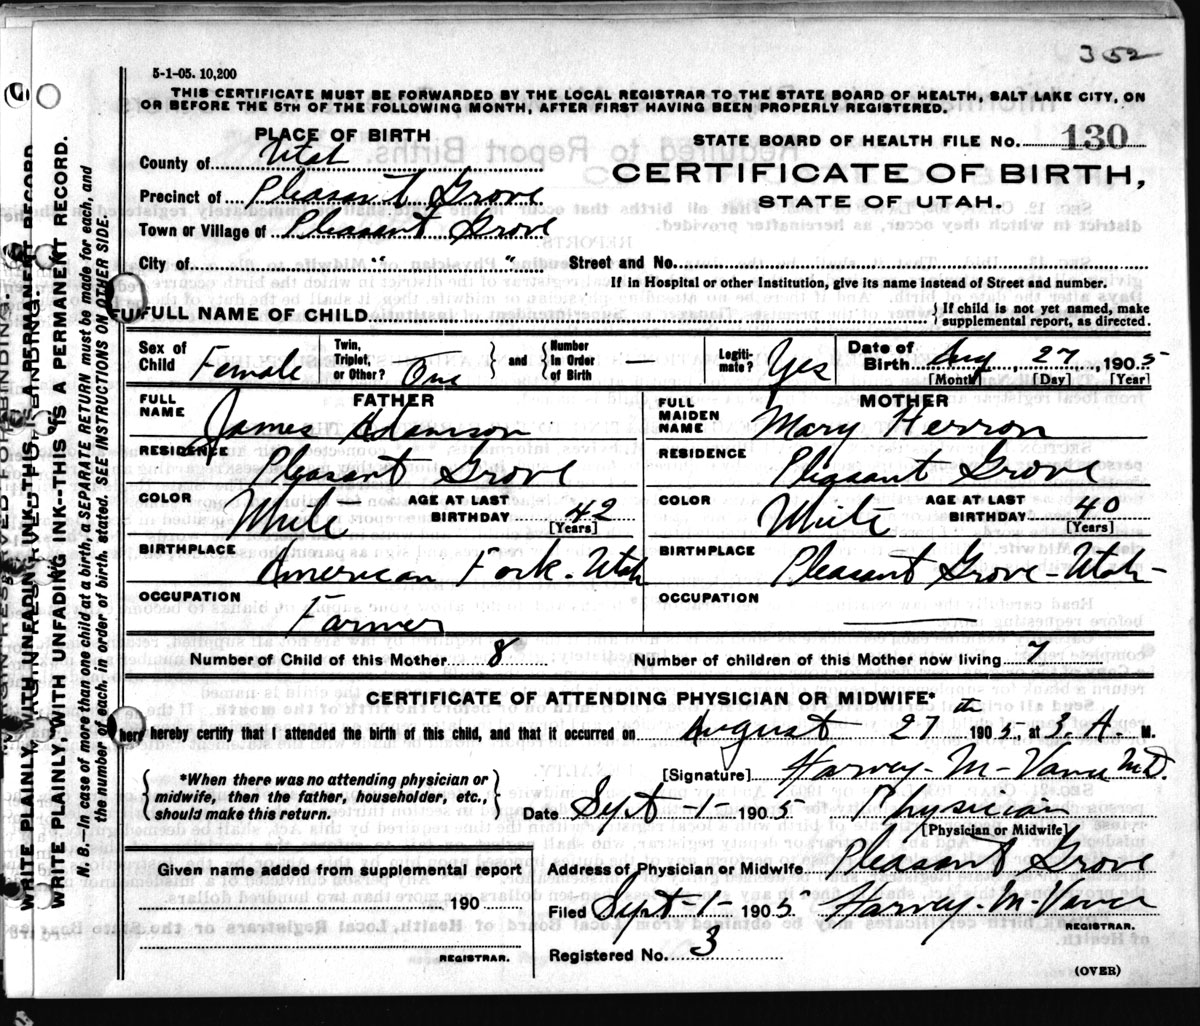 352
5-1-05. 10,200
THIS CERTIFICATE MUST BE FORWARDED BY THE LOCAL REGISTRAR TO THE STATE BOARD OF HEALTH, SALT LAKE CITY, ON
OR BEFORE THE 5TH OF THE FOLLOWING MONTH, AFTER FIRST HAVING BEEN PROPERLY REGISTERED.
PLACE OF BIRTH
County of Utah
Precinct of Pleasant Grove
Town or Village of Pleasant Grove
City of " "
STATE BOARD OF HEALTH FILE No. 130
CERTIFICATE OF BIRTH,
STATE OF UTAH.
Street and No.
If in Hospital or other Institution, give its name instead of Street and number.
FULL NAME OF CHILD
} If child is not yet named, make
supplemental report, as directed.
Sex of Child Female
Twin, Triplet, or Other? One } and { Number in Order of Birth
Legitimate? Yes
Date of Birth Aug, 27, 1905
[Month] [Day] [Year]
FATHER
FULL NAME James Adamson
RESIDENCE Pleasant Grove
COLOR White AGE AT LAST BIRTHDAY 42
[Years]
BIRTHPLACE American Fork - Utah
OCCUPATION Farmer
MOTHER
FULL MAIDEN NAME Mary Herron
RESIDENCE Pleasant Grove
COLOR White AGE AT LAST BIRTHDAY 40
[Years]
BIRTHPLACE Pleasant Grove - Utah -
OCCUPATION
Number of Child of this Mother 8 Number of children of this Mother now living 7
CERTIFICATE OF ATTENDING PHYSICIAN OR MIDWIFE*
hereby certify that I attended the birth of this child, and that it occurred on August 27th 1905, at 3. A. M.
{ *When there was no attending physician or
midwife, then the father, householder, etc.,
should make this return. }
[Signature] Harvey - M - Vance M.D.
Date Sept - 1 - 1905 Physician
[Physician or Midwife]
Address of Physician or Midwife Pleasant Grove
Filed Sept - 1 - 1905. Harvey - M - Vance
REGISTRAR.
Registered No. 3
Given name added from supplemental report
190
REGISTRAR.
(OVER)
WRITE PLAINLY WITH UNFADING INK--THIS IS A PERMANENT RECORD.
N. B.--In case of more than one child at a birth, a SEPARATE RETURN must be made for each, and
the number of each, in order of birth, stated. SEE INSTRUCTIONS ON OTHER SIDE.